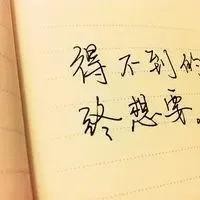 得不到的
终想要。